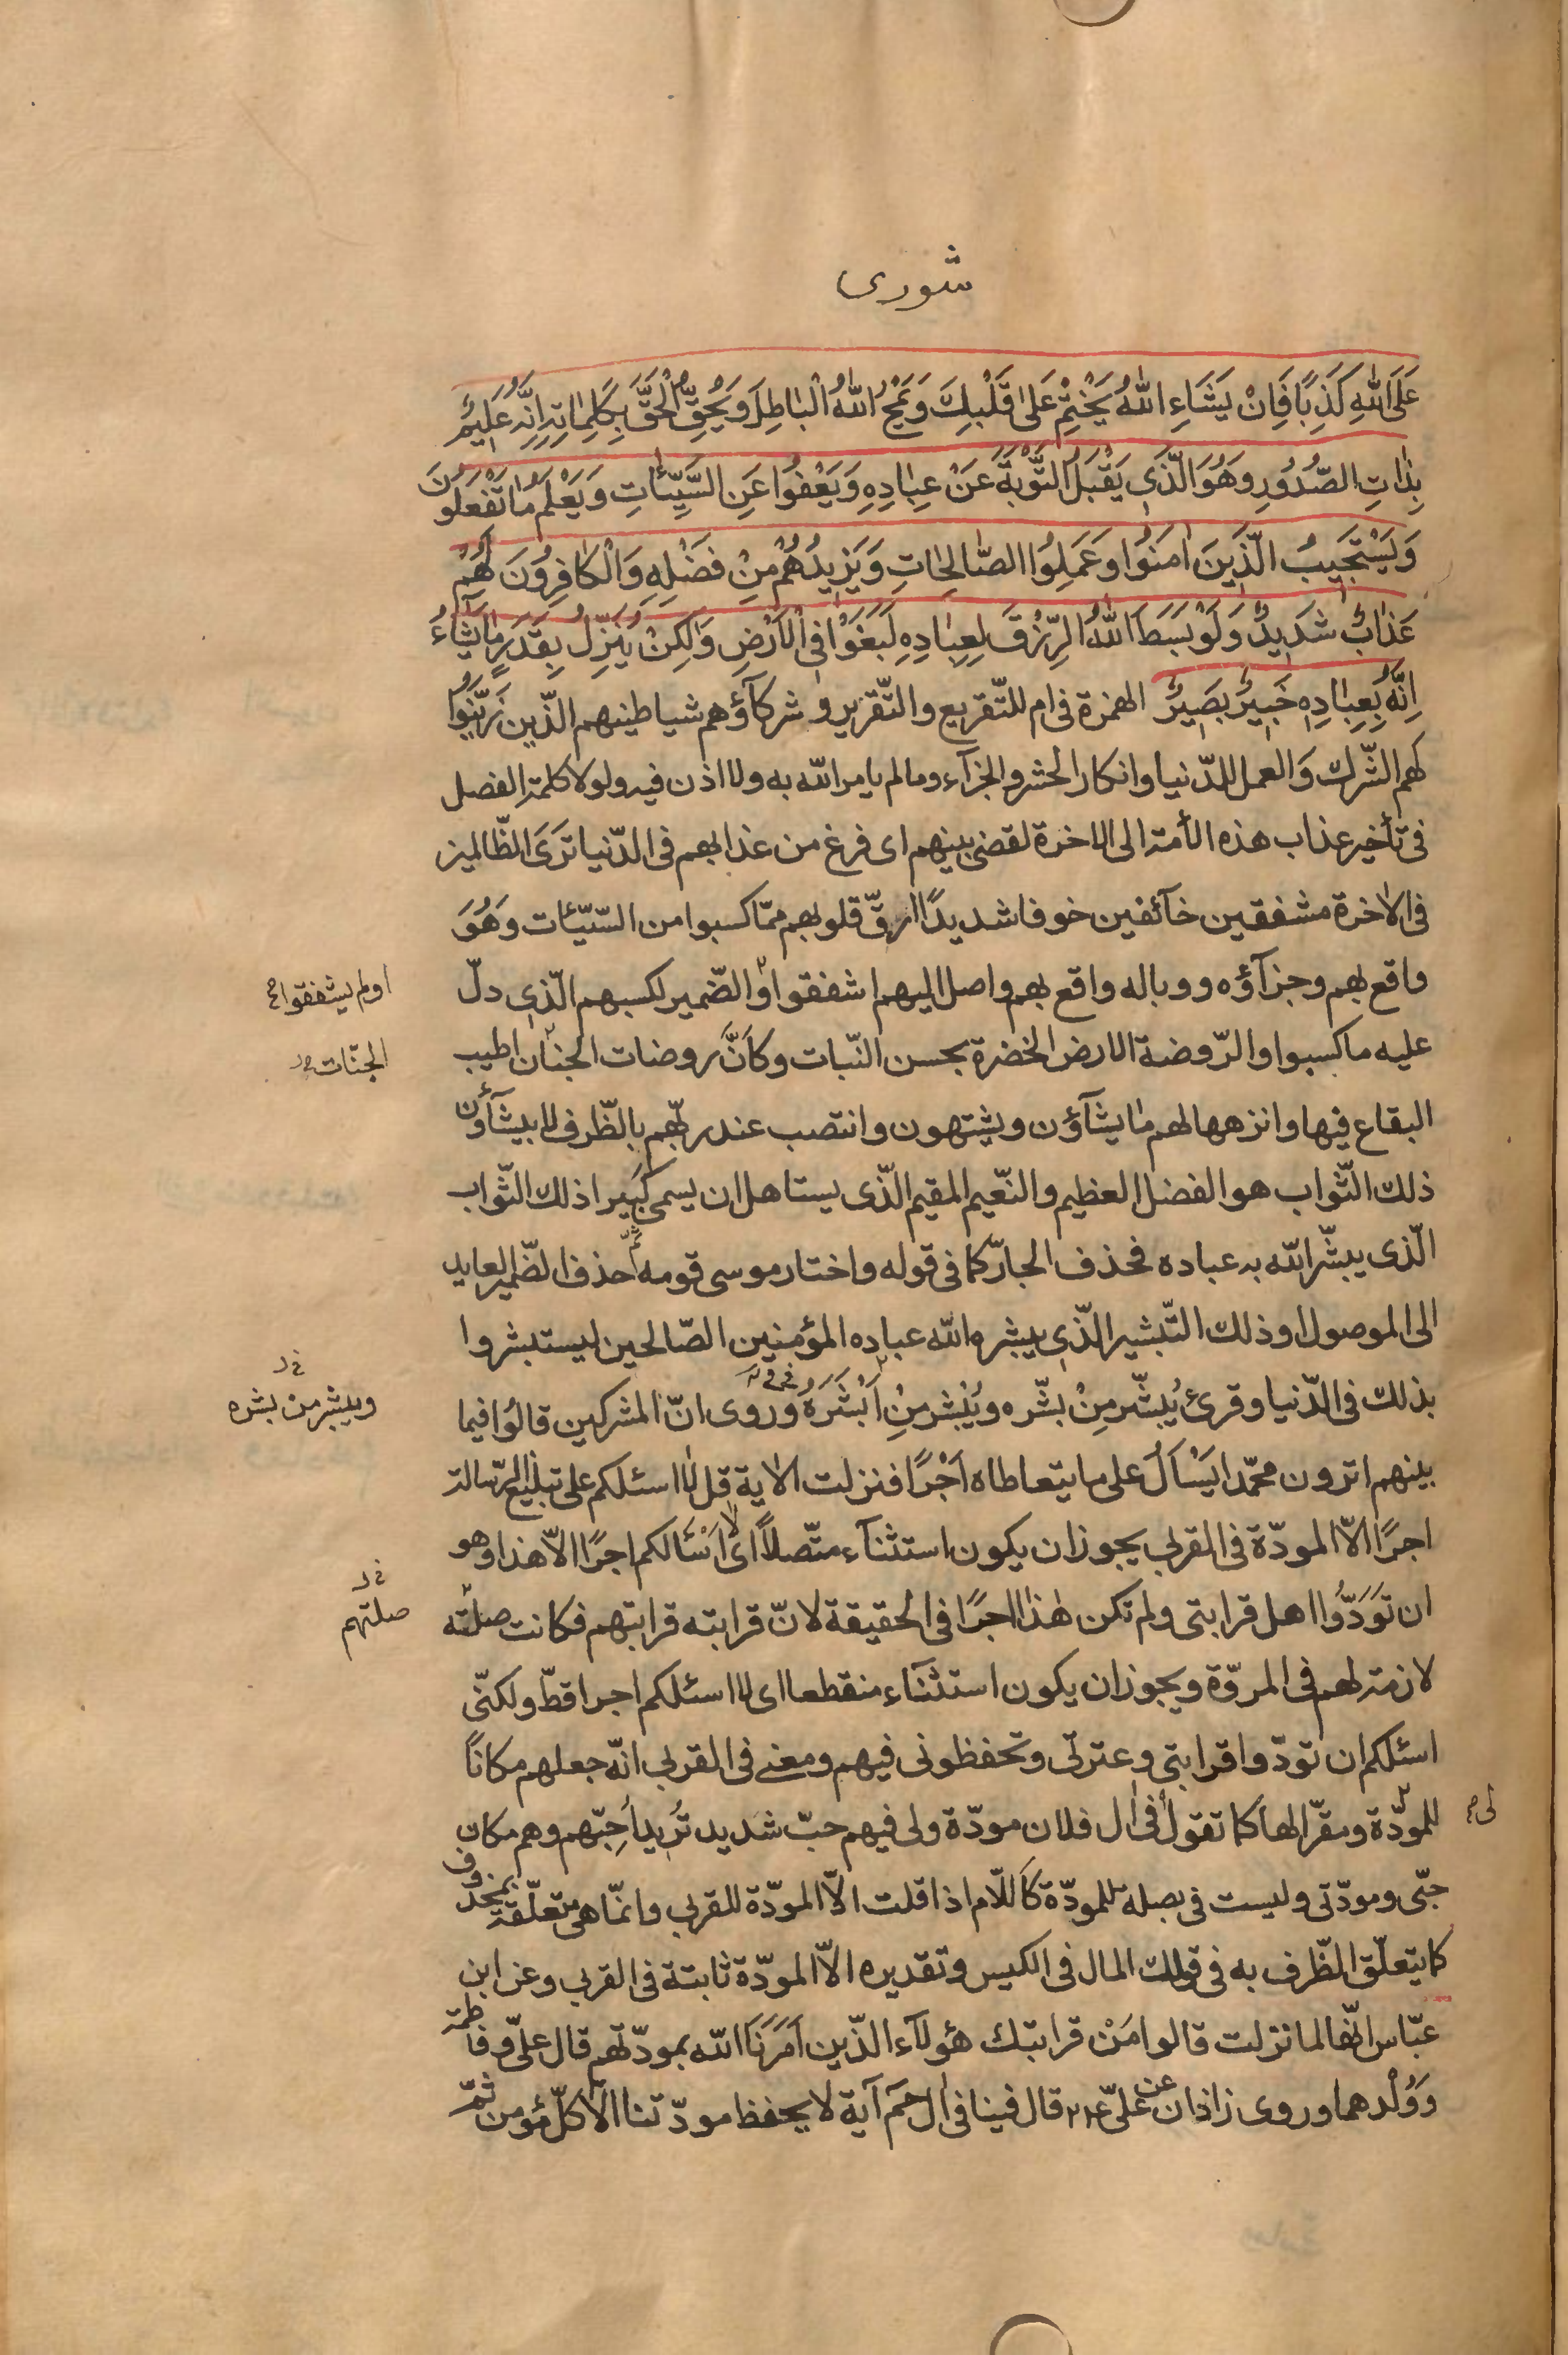 شورى
عَلَى اللّٰهِ كَذِبًا فَاِنْ يَشَاءِ اللّٰهُ يَخْتِمْ عَلٰى قَلْبِكَ وَيَمْحُ اللّٰهُ الْبٰاطِلَ وَيُحِقُّ الْحَقَّ بِكَلِمٰاتِهِ اِنَّهُ عَلِيمٌ
بِذٰاتِ الصُّدُورِ وَهُوَ الَّذِي يَقْبَلُ التَّوْبَةَ عَنْ عِبٰادِهِ وَيَعْفُوا عَنِ السَّيِّئٰاتِ وَيَعْلَمُ مٰا تَفْعَلُونَ
وَيَسْتَجِيبُ الَّذِينَ اٰمَنُوا وَعَمِلُوا الصّٰالِحٰاتِ وَيَزِيدُهُمْ مِنْ فَضْلِهِ وَالْكٰافِرُونَ لَهُمْ
عَذٰابٌ شَدِيدٌ وَلَوْ بَسَطَ اللّٰهُ الرِّزْقَ لِعِبٰادِهِ لَبَغَوْا فِي الْاَرْضِ وَلٰكِنْ يُنَزِّلُ بِقَدَرٍ مٰا يَشٰاءُ
اِنَّهُ بِعِبٰادِهِ خَبِيرٌ بَصِيرٌ الهمزة فى ام للتّقريع والتّقرير و شركآؤهم شياطينهم الّذين زَيَّنُوا
لهم الشّرك وَالعمل للدّنيا وانكار الحشر والجزآء وما لم يامر اللّه به ولا اذن فيه ولولا كلمة الفصل
فى تأخير عذاب هذه الأمة الى الاخرة لقضى بينهم اى فرغ من عذابهم فى الدّنيا تَرَى الظّالمين
فى الاخرة مشفقين خآئفين خوفا شديدًا ارقّ قلوبهم ممّا كسبوا من السّيّئات وَهُوَ
واقع بهم وجزآؤه ووباله واقع بهم واصل اليهم اشفقوا والضّمير لكسبهم الّذى دلّ
اولم يشفقوا صح
عليه ما كسبوا والرّوضة الارض الخضرة بحسن النّبات وكاَنَّ روضات الجنان اطيب
الجنّات
البقاع فيها وانزهها لهم ما يشآؤن ويشتهون وانتصب عند ربّهم بالظّرف لا بيشآؤن
ذلك الثّواب هو الفضل العظيم والنّعيم المقيم الّذى يستاهل ان يسمى كَبِيرا ذلك الثّواب
الّذى يبشّر اللّه به عباده فحذف الجارّ كما فى قوله واختار موسى قومه ثمّ حذف الضّمير العايد
الى الموصول او ذلك التّبشير الّذى يبشره اللّه عباده المؤمنين الصّالحين ليستبشروا
بذلك فى الدّنيا وقرئ يُبشّر مِنْ بشّره ويُبْشر مِنْ اَبْشَرَهُ وروى انّ المشركين قالُوا فيما
ويبشر من بشره
بينهم اترون محمّدا يَسْاَلُ على ما يتعاطاه اَجْرًا فنزلت الاٰية قل لٰا اسئلكم على تبليغ الرّسالة
اجرًا الّا المودّة فى القربى يجوز ان يكون استثنآء متّصلًا اى لا اَسْئَالكم اجرًا الّا هذا وهو
ان تَوَدُّوا اهل قرابتى ولم تكن هٰذا اجرًا فى الحقيقة لانّ قرابته قرابتهم فكانت صلته
صلتهم
لازمة لهم فى المروّة ويجوز ان يكون استثنآء منقطعا اى لا اسئلكم اجرا قطّ ولكنّى
اسئلكم ان تودّوا قرابتى وعترتى وتحفظونى فيهم ومعنى فى القربى انّه جعلهم مكانًا
للمودّة ومقرّا لها كما تقول فى اٰل فلان مودّة ولى فيهم حبّ شديد تُريد اُحِبّهم وهم مكان
لى صح
حبّى ومودّتى وليست فى بصلة للمودّة كَاللّام اذا قلت الّا المودّة للقربى وانّما هى متعلّقة بمحذوف
كما يتعلّق الظّرف به فى قولك المال فى الكيس وتقديره الّا المودّة ثابتة فى القربى وعن ابن
عبّاس انّها لما نزلت قالوا مَنْ قرابتك هؤلآء الّذين اَمَرَنَا اللّه بمودّتهم قال علىّ وفاطمة
وَوُلْدهما وروى زاذان عن علىّ ع قال فينا فى اٰل حٓمٓ آية لا يحفظ مودّتنا الّا كلّ مؤمن ثمّ